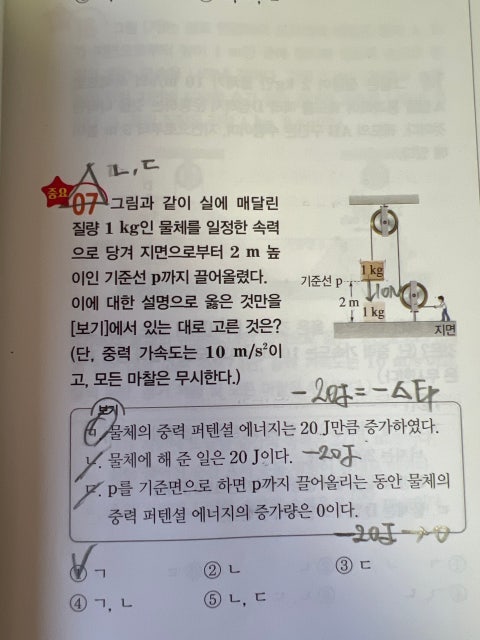 ㄴ, ㄷ
중요
07 그림과 같이 실에 매달린
질량 1 kg인 물체를 일정한 속력
으로 당겨 지면으로부터 2 m 높
이인 기준선 p까지 끌어올렸다.
이에 대한 설명으로 옳은 것만을
[보기]에서 있는 대로 고른 것은?
(단, 중력 가속도는 10 m/s²이
고, 모든 마찰은 무시한다.)
1 kg
기준선 p
10N
2 m
1 kg
지면
-20J = -ΔEp
보기
ㄱ. 물체의 중력 퍼텐셜 에너지는 20 J만큼 증가하였다.
ㄴ. 물체에 해 준 일은 20 J이다. -20J
ㄷ. p를 기준면으로 하면 p까지 끌어올리는 동안 물체의
중력 퍼텐셜 에너지의 증가량은 0이다.
-20J → 0
① ㄱ ② ㄴ ③ ㄷ
④ ㄱ, ㄴ ⑤ ㄴ, ㄷ